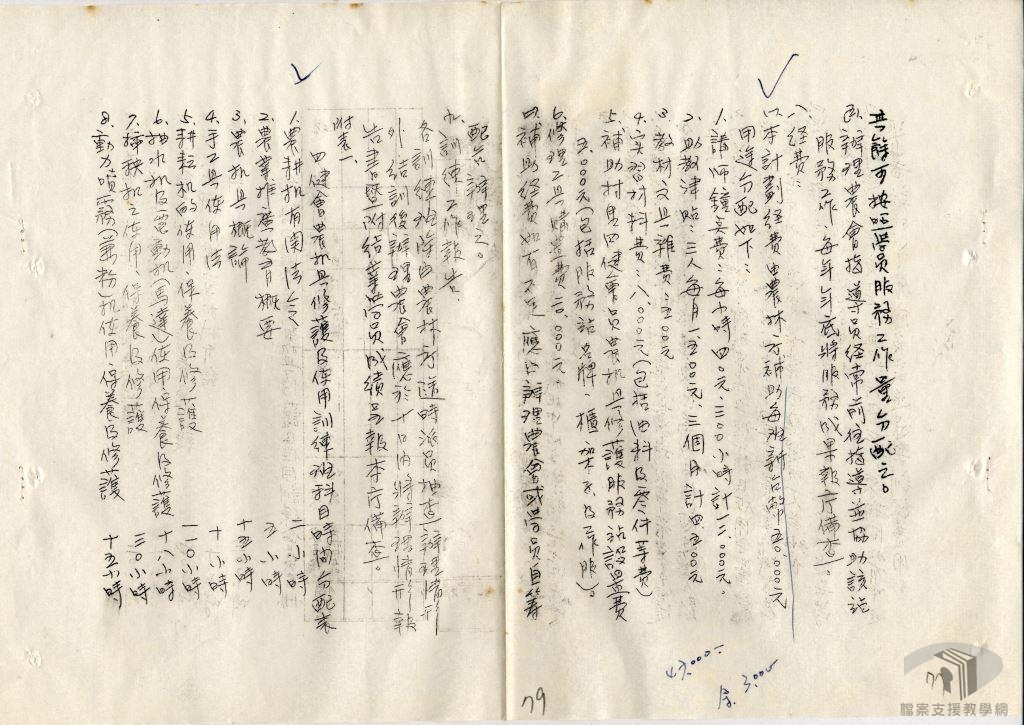 其餘可按照學員服務工作量分配之。
(五)辦理農會指導員經常前往指導並協助該站
服務工作、每年年底將服務成果報廳備查。
八、經費：
(一)本計劃經費由農林廳補助每班新台幣五0000元
用途分配如下：
1.講師鐘点費：每小時四0元、三00小時計一二、000元。
2.助教津貼：三人每月一五00元、三個月計四五00元
3.教材文具雜費：五00元
4.實習材料費：八、000元(包括油料及零件等費)
5.補助村里四健會員農機具修護服務站設置費
五、000元(包括服務站名牌、櫃架子及工作服)。
6.修理工具購置費 000元
四、補助經費如有不足應由辦理農會或學員自籌
配合辦理之。
九、訓練工作報告
各訓練班除由農林廳隨時派員抽查辦理情形
外、結訓後辦理農會應於十日內將辦理情形報
告書暨附結業學員成績呈報本廳備查。
附表一、
四健會農機具修護及使用訓練班科目時間分配表
1.農耕機有關法令 二小時
2.農業推廣教育概要 五小時
3.農機具概論 十五小時
4.手工具使用法 十小時
5.耕耘機的使用、保養及修護 一一0小時
6.抽水機及電動機(馬達)使用保養及修護 十八小時
7.插秧機工使用、保養及修護 三0小時
8.動力噴霧(兼粉)機使用保養及修護 十五小時
47.000-
余 3.000
79
檔案支援教學網